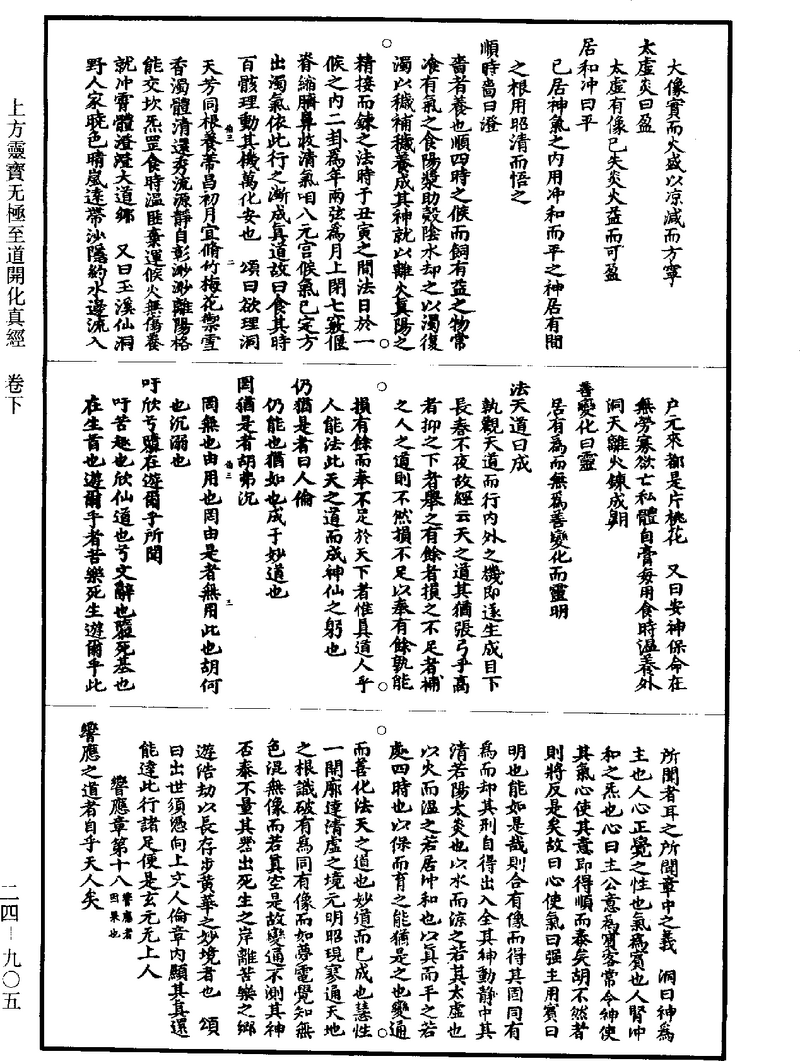 上方靈寶无極至道開化真經　卷下
二四—九〇五
大像實而火盛以凉減而方寧
太虛炎曰盈
太虛有像已失炎火益而可盈
居和冲曰平
已居神氣之内用冲和而平之神居有間
之根用昭清而悟之
順時嗇曰澄
嗇者養也順四時之候而飼有益之物常
飡有氣之食陽漿助穀陰水却之以濁復
濁以穢補穢養成其神就以離火真陽之
精接而鍊之法時于丑寅之間法日於一
候之内二卦爲年兩弦爲月上閉七竅偃
脊縮臍鼻收清氣咱八元宫候氣已定方
出濁氣依此行之漸成真道故曰食其時
百骸理動其機萬化安也　頌曰欲理洞
天芳同根養蒂昌初月宜脩竹梅花禦雪
香濁體清還秀流源靜自彰渺渺離陽格
能交坎炁罡食時溫匪棄運候火無傷養
就冲霄體澄澄大道鄉　又曰玉溪仙洞
野人家晓色晴嵐逹帶沙隱約水邊流入
户元來都是片桃花　又曰安神保命在
無勞寡欲亡私體自膏每用食時溫養外
洞天離火鍊成朝
善變化曰靈
居有爲而無爲善變化而靈明
法天道曰成
執觀天道而行内外之機即遂生成目下
長春不夜故經云天之道其猶張弓乎高
者抑之下者舉之有餘者損之不足者補
之人之道則不然損不足以奉有餘孰能
損有餘而奉不足於天下者惟具道人乎
人能法此天之道而成神仙之躬也
仍猶是者曰人倫
仍能也猶如也成于妙道也
罔猶是者胡弗沉
罔無也由用也罔由是者無用此也胡何
也沉溺也
吁欣兮驅在遊爾乎所聞
吁苦趣也欣仙道也兮文辭也驅死基也
在生首也遊爾乎者苦樂死生遊爾乎此
所聞者耳之所聞章中之義　洞曰神爲
主也人心正覺之性也氣爲賓也人腎冲
和之炁也心曰主公意為賓客常令神使
其氣心使其意即得順而泰矣胡不然者
則將反是矣故曰心使氣曰强主用賓曰
明也能如是哉則合有像而得其固同有
爲而却其刑自得出入全其神動靜中其
清若陽太炎也以水而凉之若其太虛也
以火而溫之若居冲和也以真而平之若
處四時也以保而育之能猶是之也變通
而善化法天之道也妙道而已成也慧性
一開廓達清虛之境元明昭現寥通天地
之根識破有爲同有像而如夢電覺知無
色混無像而若真空是故變通不測其神
否泰不量其畏出死生之岸離苦樂之鄉
遊浩劫以長存步黄華之妙境者也　頌
曰出世須憑向上文人倫章内顯其真還
能達此行諸足便是玄元无上人
響應章第十八響應者因果也
響應之道者自乎天人矣